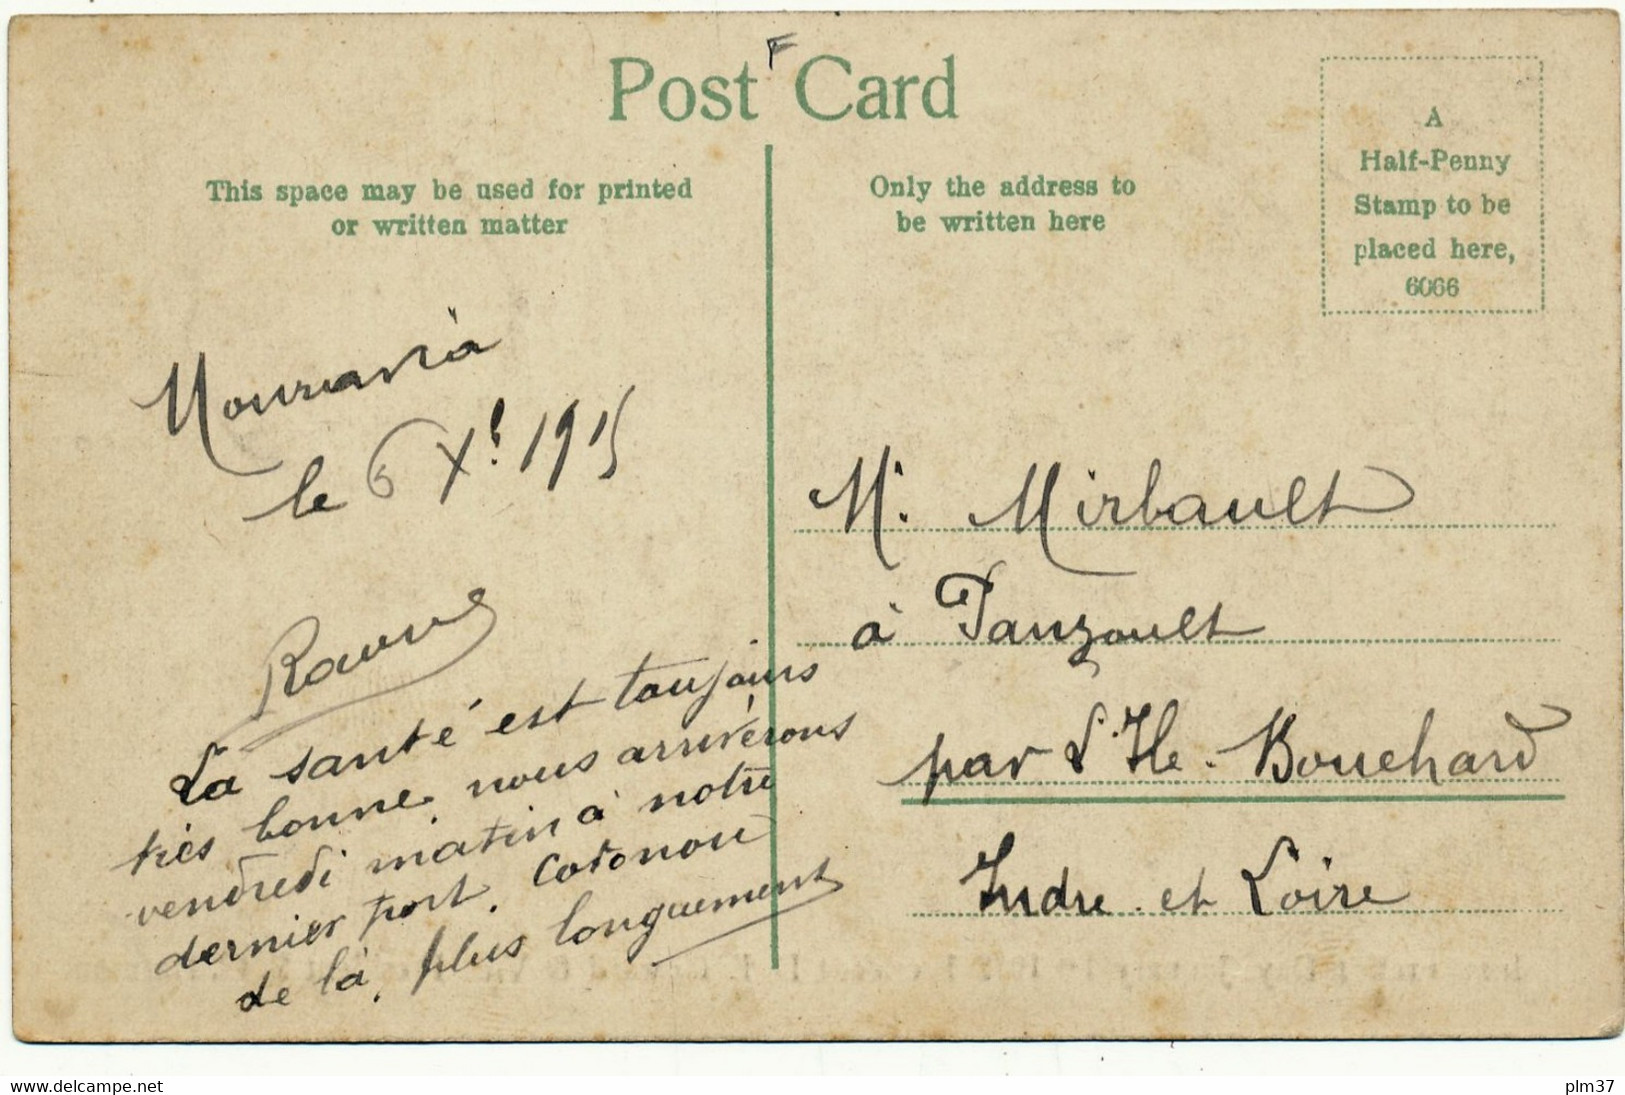 F
Post Card
This space may be used for printed
or written matter
Only the address to
be written here
A
Half-Penny
Stamp to be
placed here,
6066
le 6 Xe 1915
La santé est toujours
très bonne. nous arriverons
vendredi matin à notre
dernier port. Cotonou
de là, plus longuement
M. Mirbault
à Panzoult
par L'Ile-Bouchard
Indre et Loire
www.delcampe.net
plm37